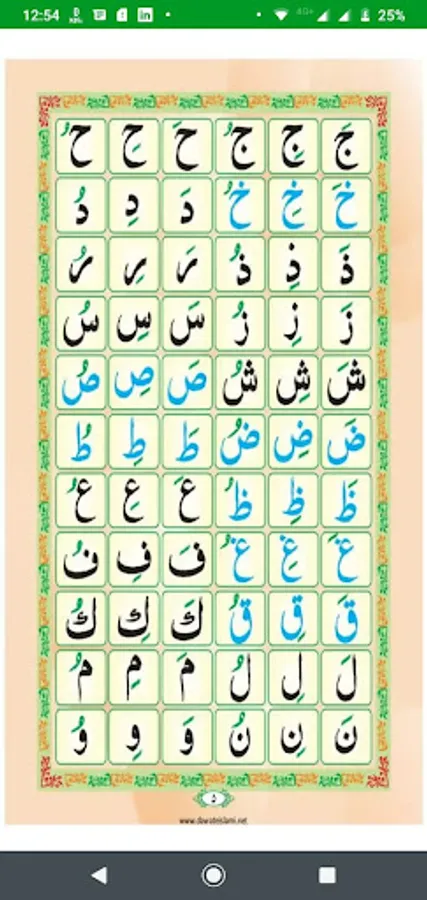 12:54 4G+ 25%
جَ جِ جُ حَ حِ حُ
خَ خِ خُ دَ دِ دُ
ذَ ذِ ذُ رَ رِ رُ
زَ زِ زُ سَ سِ سُ
شَ شِ شُ صَ صِ صُ
ضَ ضِ ضُ طَ طِ طُ
ظَ ظِ ظُ عَ عِ عُ
غَ غِ غُ فَ فِ فُ
قَ قِ قُ كَ كِ كُ
لَ لِ لُ مَ مِ مُ
نَ نِ نُ وَ وِ وُ
۵
www.dawateislami.net